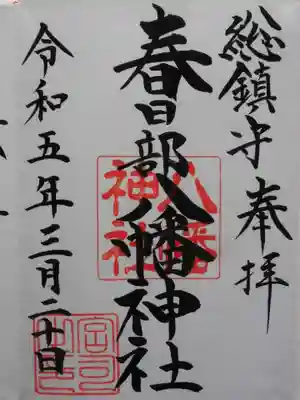 総鎮守奉拝
春日部八幡神社
八幡
神社
令和五年三月二十日
宮司
之印